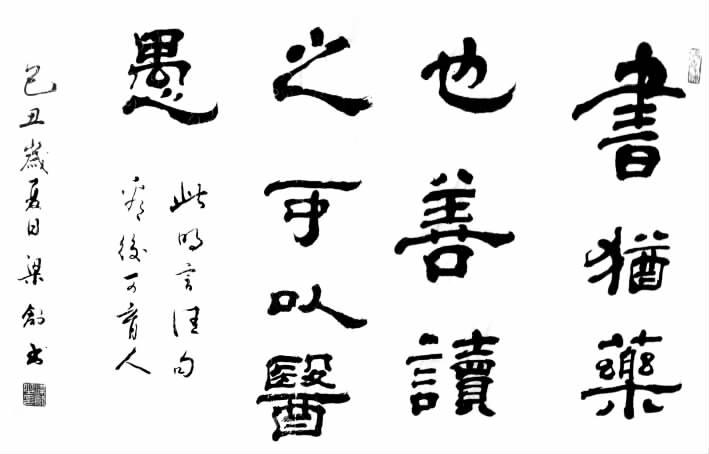 書猶藥
也善讀
之可以醫
愚
此明言佳句
看後可育人
己丑歲夏日梁創書